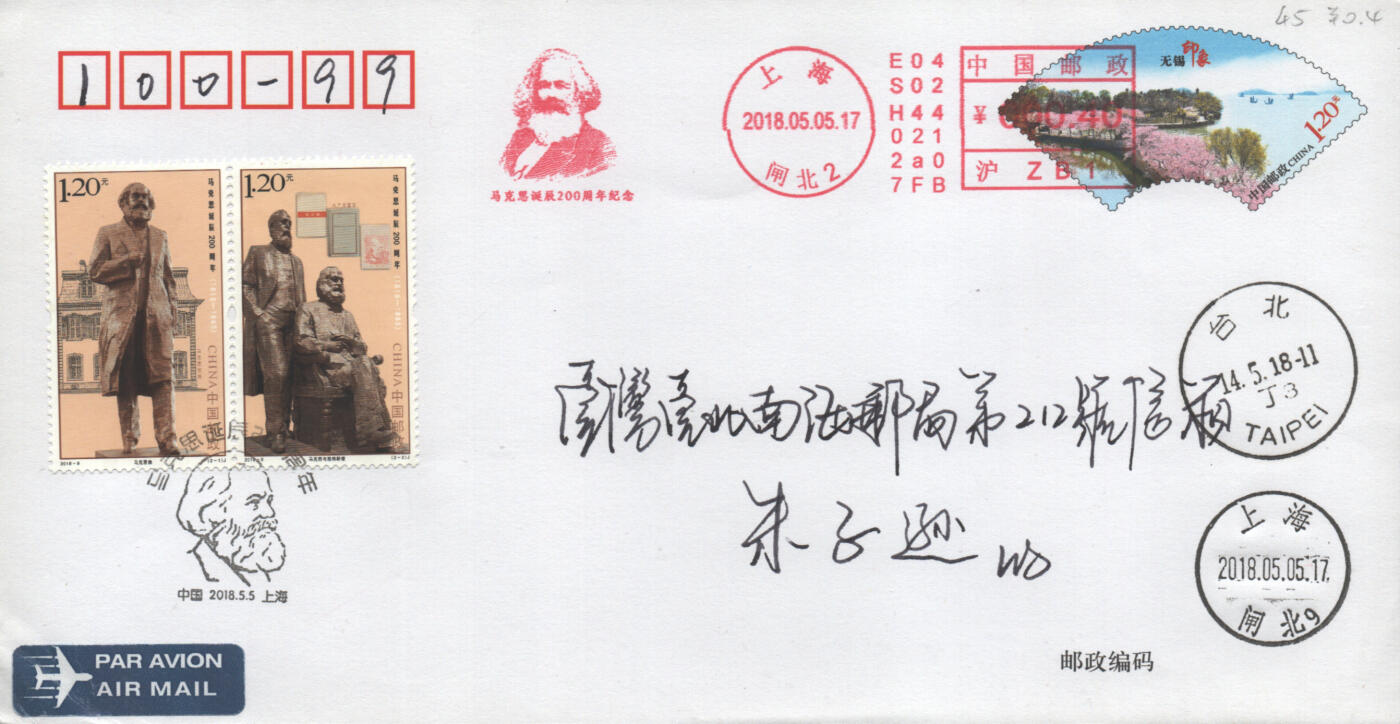 45 ¥0.4
100-99
马克思诞辰200周年纪念
上海
2018.05.05.17
闸北2
E04
S02
H44
021
2a0
7FB
中国邮政
¥ 000.40
沪 ZB1
无锡
印象
1.20元
中国邮政 CHINA
1.20元
马克思诞辰200周年(1818—1883)
CHINA 中国邮政
2018-9
马克思像
(2-1)J
1.20元
马克思诞辰200周年(1818—1883)
CHINA 中国邮政
马克思与恩格斯像
(2-2)J
中国 2018.5.5 上海
台北
14.5.18-11
丁3
TAIPEI
臺灣臺北南海郵局第212號信箱
朱子遜
上海
2018.05.05.17
闸北9
邮政编码
PAR AVION
AIR MAIL